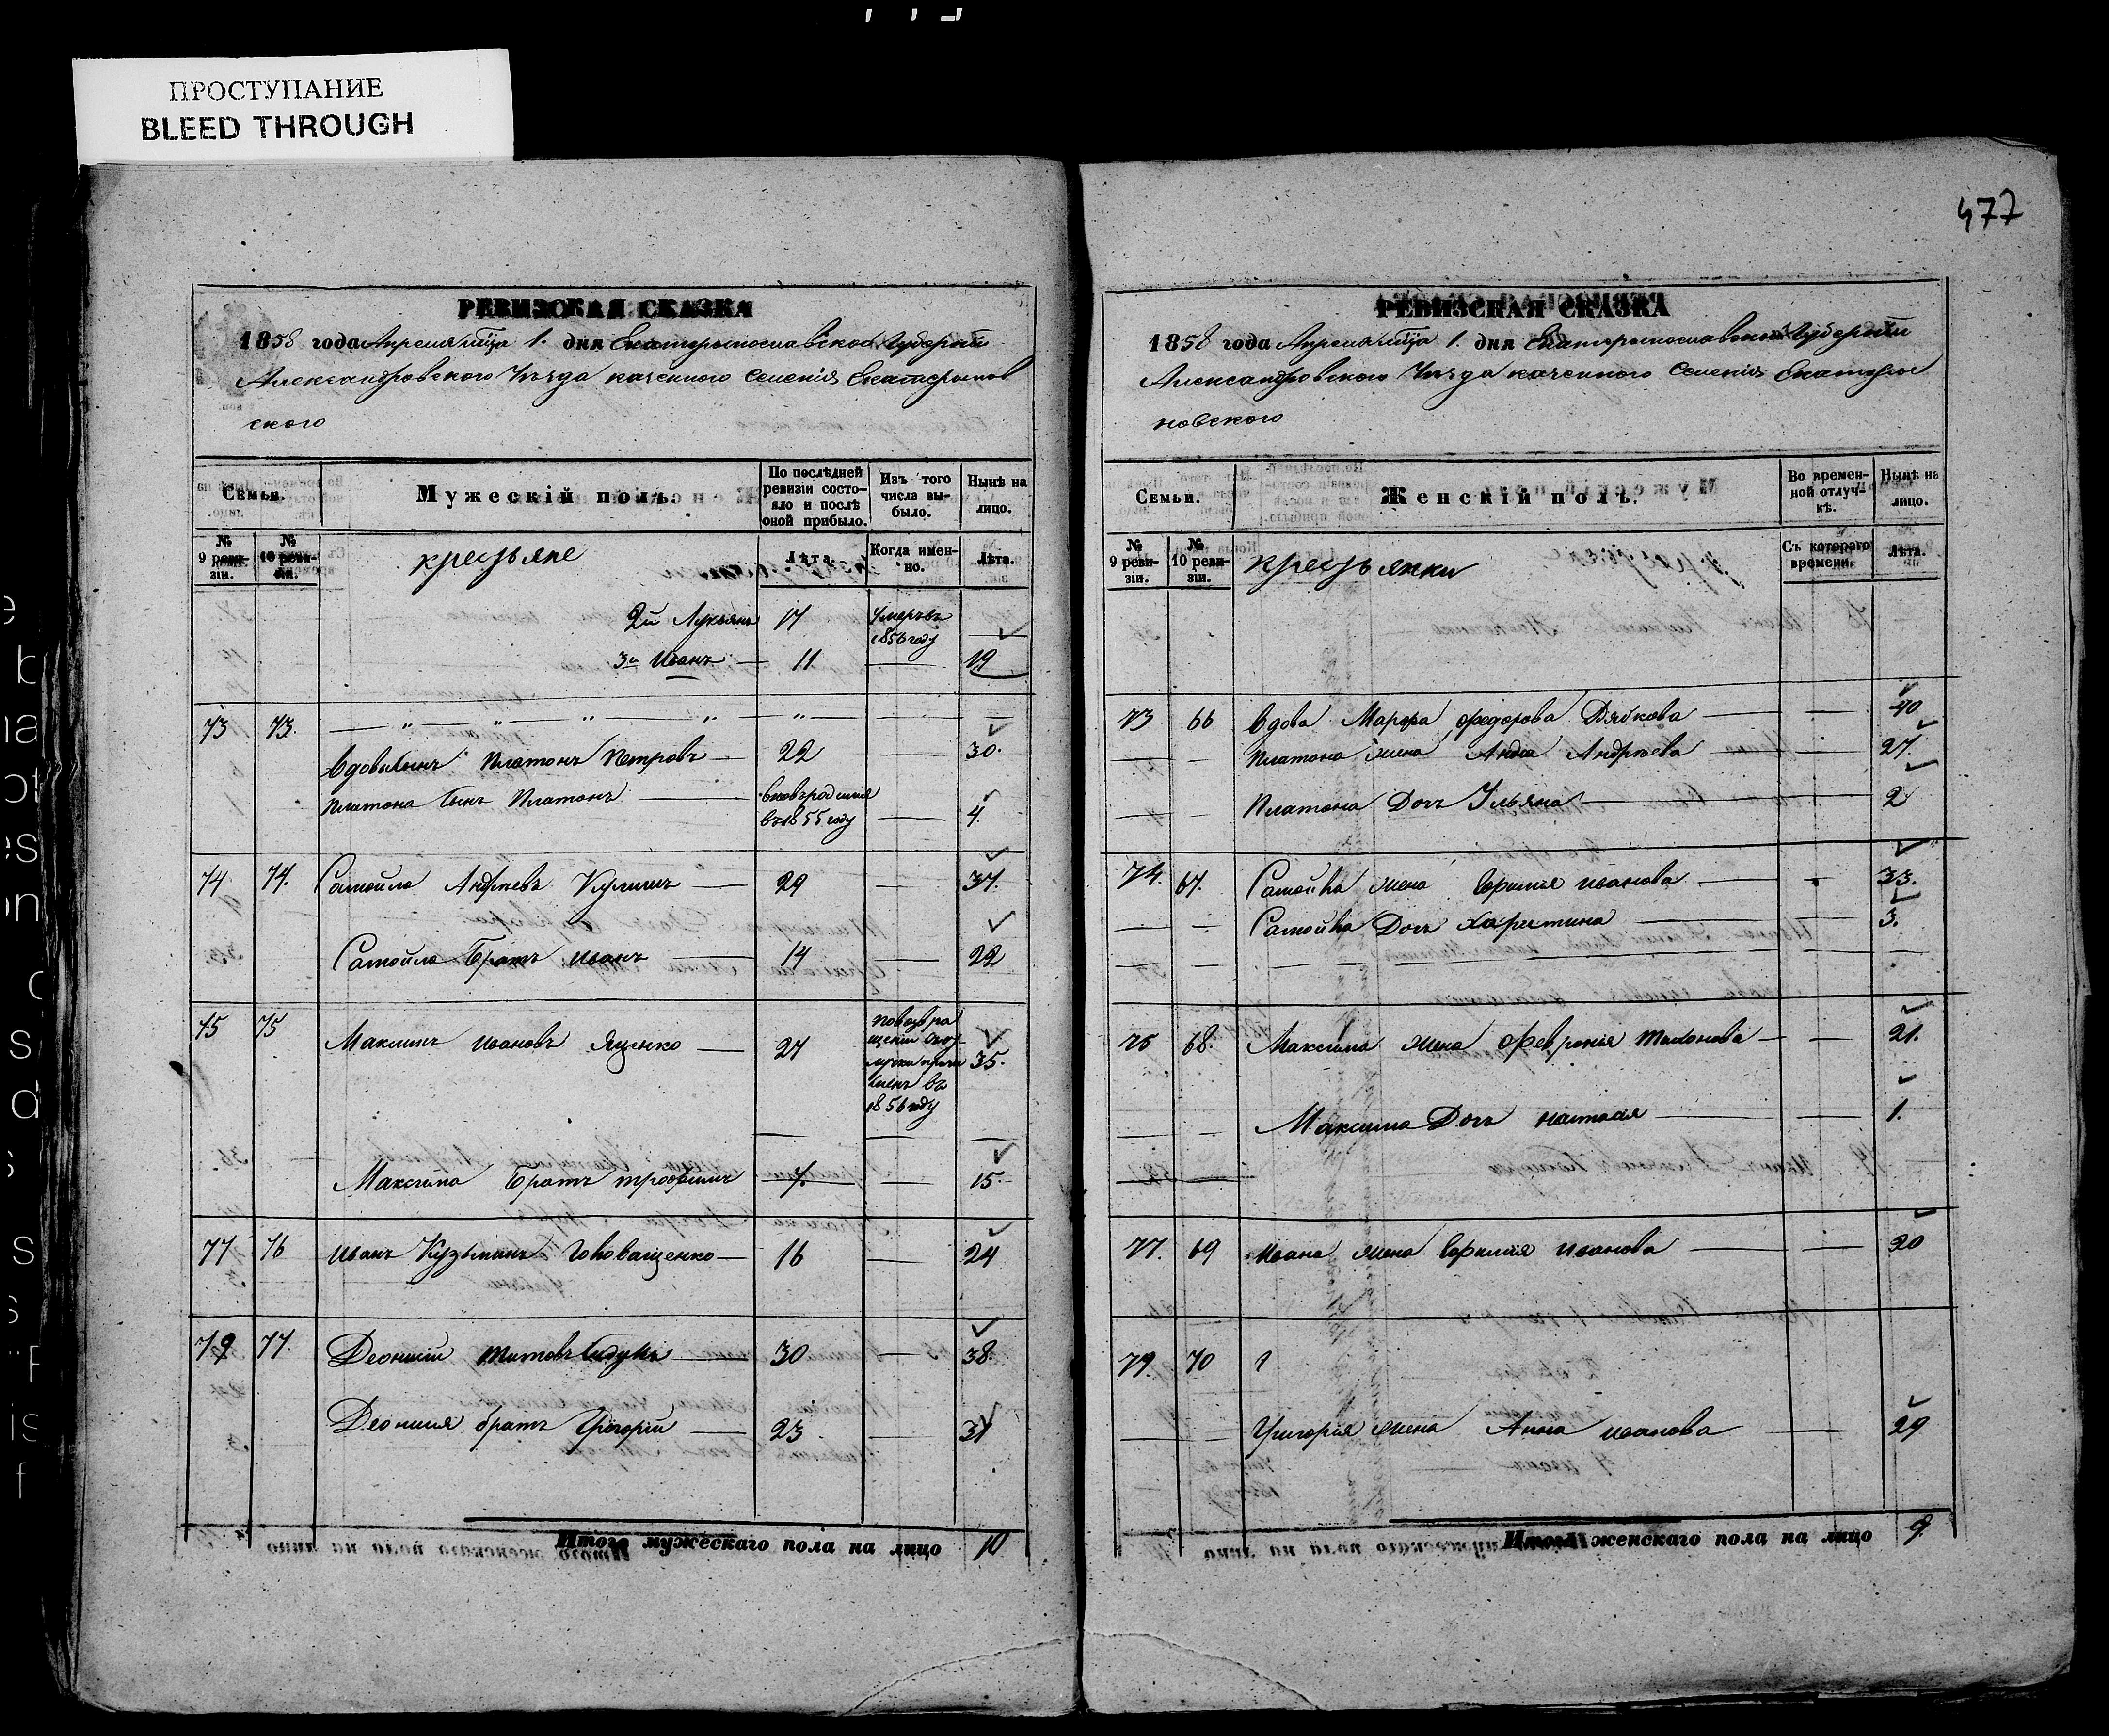 ПРОСТУПАНИЕ
BLEED THROUGH
477
РЕВИЗСКАЯ СКАЗКА
1858 года Апреля м̃ца 1. дня Екатеринославской Губернiи
Александровского Уѣзда казенного Селенiя Екатеринов
ского
Семьи.
Мужескiй полъ.
По послѣдней ревизiи состояло и послѣ оной прибыло.
Изъ того числа выбыло.
Нынѣ на лицо.
№ 9 ревизiи.
№ 10 ревизiи.
крестьяне
Лѣта.
Когда именно.
Лѣта.
2й Лукьянъ 17 Умеръ въ 1856 году —
3й Иванъ — 11. — 19
73 73. — " — " — " — " — " —
Вдовы Сынъ Платонъ Петровъ — 22 — 30.
Платона Сынъ Платонъ — въ 1855 году — 4.
74 74. Самойло Андреевъ — 29 — 37.
Самойло Братъ Иванъ — 14 — 22
75 75 Максимъ Ивановъ Яценко — 27 35.
1856 году
Максима Братъ Трофимъ 7. — 15.
77 76 Иванъ Кузьминъ Головащенко — 16 — 24
79 77. Деонисiй Титовъ — 30 — 38.
Деонисiя братъ Григорiй — 23 — 31
Итого мужескаго пола на лицо 10
РЕВИЗСКАЯ СКАЗКА
1858 года Апреля м̃ца 1. дня Екатеринославской Губернiи
Александровского Уѣзда казенного Селенiя Екатери
новского
Семьи.
Женскiй полъ.
Во временной отлучкѣ.
Нынѣ на лицо.
№ 9 ревизiи.
№ 10 ревизiи.
крестьянки
Съ котораго времени.
Лѣта.
73 66 Вдова Марфа Федорова Дябкова — — 40
Платона жена Андреева — — 27.
Платона Дочь Ульяна — — 2
74. 67. Самойла жена Ефимiя Иванова — 33.
Самойла Дочь Харитина — — 3.
75 68. Максима жена Февронiя — — 21.
Максима Дочь — — 1.
77. 69 Ивана жена Ефимiя Иванова — — 20
79. 70
Григорiя жена Анна Иванова — 29
Итого женскаго пола на лицо 9.